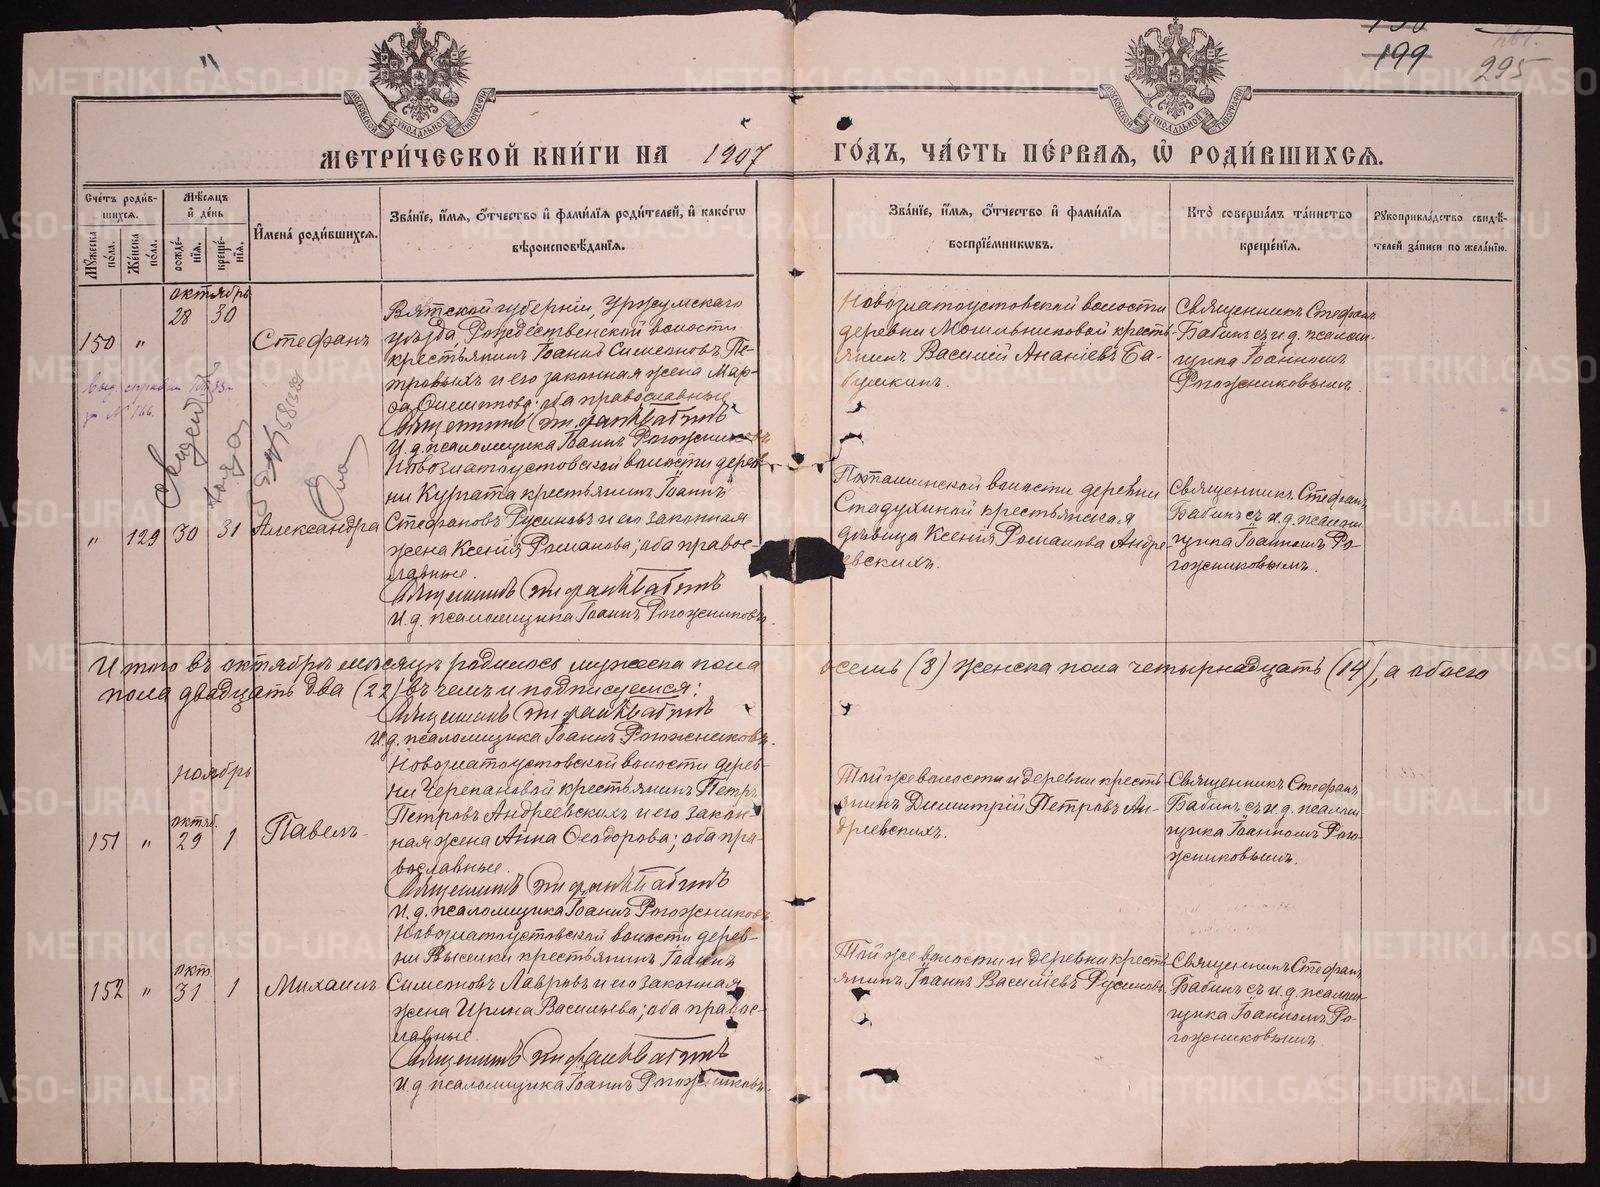 199
295
МЕТРИ́ЧЕСКОЙ КНИ́ГИ НА 1907 ГО́ДЪ, ЧА́СТЬ ПЕ́РВАЯ, Ѡ҆ РОДИ́ВШИХСѦ.
Сче́тъ роди́в-
шихсѧ.
Мѣ́сѧцъ
и҆ де́нь
Мꙋ́жеска по́ла.
Же́нска по́ла.
рожде́-
нїѧ.
креще́-
нїѧ.
И҆мена̀ роди́вшихсѧ.
Зва́нїе, и҆́мѧ, ѻ҆́тчество и҆ фами́лїѧ роди́телей, и҆ како́гѡ
вѣроисповѣ́данїѧ.
Зва́нїе, и҆́мѧ, ѻ҆́тчество и҆ фами́лїѧ
воспрїе́мникѡвъ.
Кто̀ соверша́лъ та́инство
креще́нїѧ.
Рꙋкоприкла́дство свидѣ́-
телей за́писи по жела́нїю.
октябрь
150 " 28 30 Стефанъ
Вятской губерніи, Уржумскаго
уѣзда, Рождественской волости
крестьянинъ Іоаннъ Симеоновъ Пе-
тровыхъ и его законная жена Мар-
оба православные
Священникъ Стефанъ Бабинъ
И. д. псаломщика Іоаннъ Рогожниковъ
Новозлатоустовской волости
деревни Могильниковой кресть-
янинъ Василій Ананіевъ Ба-
бушкинъ.
Священникъ Стефанъ
Бабинъ съ и. д. псалом-
щика Іоанномъ
Рогожниковымъ.
" 129 30 31 Александра
Новозлатоустовской волости дерев-
ни Кургата крестьянинъ Іоаннъ
Стефановъ Русиновъ и его законная
жена Ксенія Романова; оба правос-
лавные.
Священникъ Стефанъ Бабинъ
И. д. псаломщика Іоаннъ Рогожниковъ.
Поташинской волости деревни
Стадухиной крестьянская
дѣвица Ксенія Романова Андре-
евскихъ.
Священникъ Стефанъ
Бабинъ съ и. д. псалом-
щика Іоанномъ Ро-
гожниковымъ.
Итого въ октябрѣ мѣсяцѣ родилось мужеска пола осемь (8) женска пола четырнадцать (14), а обоего
пола двадцать два (22) въ чемъ и подписуемся:
Священникъ Стефанъ Бабинъ
И. д. псаломщика Іоаннъ Рогожниковъ.
ноябрь
октяб.
151 " 29 1 Павелъ
Новозлатоустовской волости дерев-
ни Черепановой крестьянинъ Петръ
Петровъ Андреевскихъ и его закон-
ная жена Анна Ѳеодорова; оба пра-
вославные.
Священникъ Стефанъ Бабинъ
И. д. псаломщика Іоаннъ Рогожниковъ
Той же волости и деревни кресть-
янинъ Димитрій Петровъ Ан-
дреевскихъ.
Священникъ Стефанъ
Бабинъ съ и. д. псалом-
щика Іоанномъ Рого-
жниковымъ.
окт.
152 " 31 1 Михаилъ
Новозлатоустовской волости дерев-
ни Выселки крестьянинъ Іоаннъ
Симеоновъ Лавровъ и его законная
жена Ирина Васильева; оба правос-
лавные.
Священникъ Стефанъ Бабинъ
И. д. псаломщика Іоаннъ Рогожниковъ.
Той же волости и деревни кресть-
янинъ Іоаннъ Василіевъ Русиновъ.
Священникъ Стефанъ
Бабинъ съ и. д. псалом-
щика Іоанномъ Ро-
гожниковымъ
METRIKI.GASO-URAL.RU